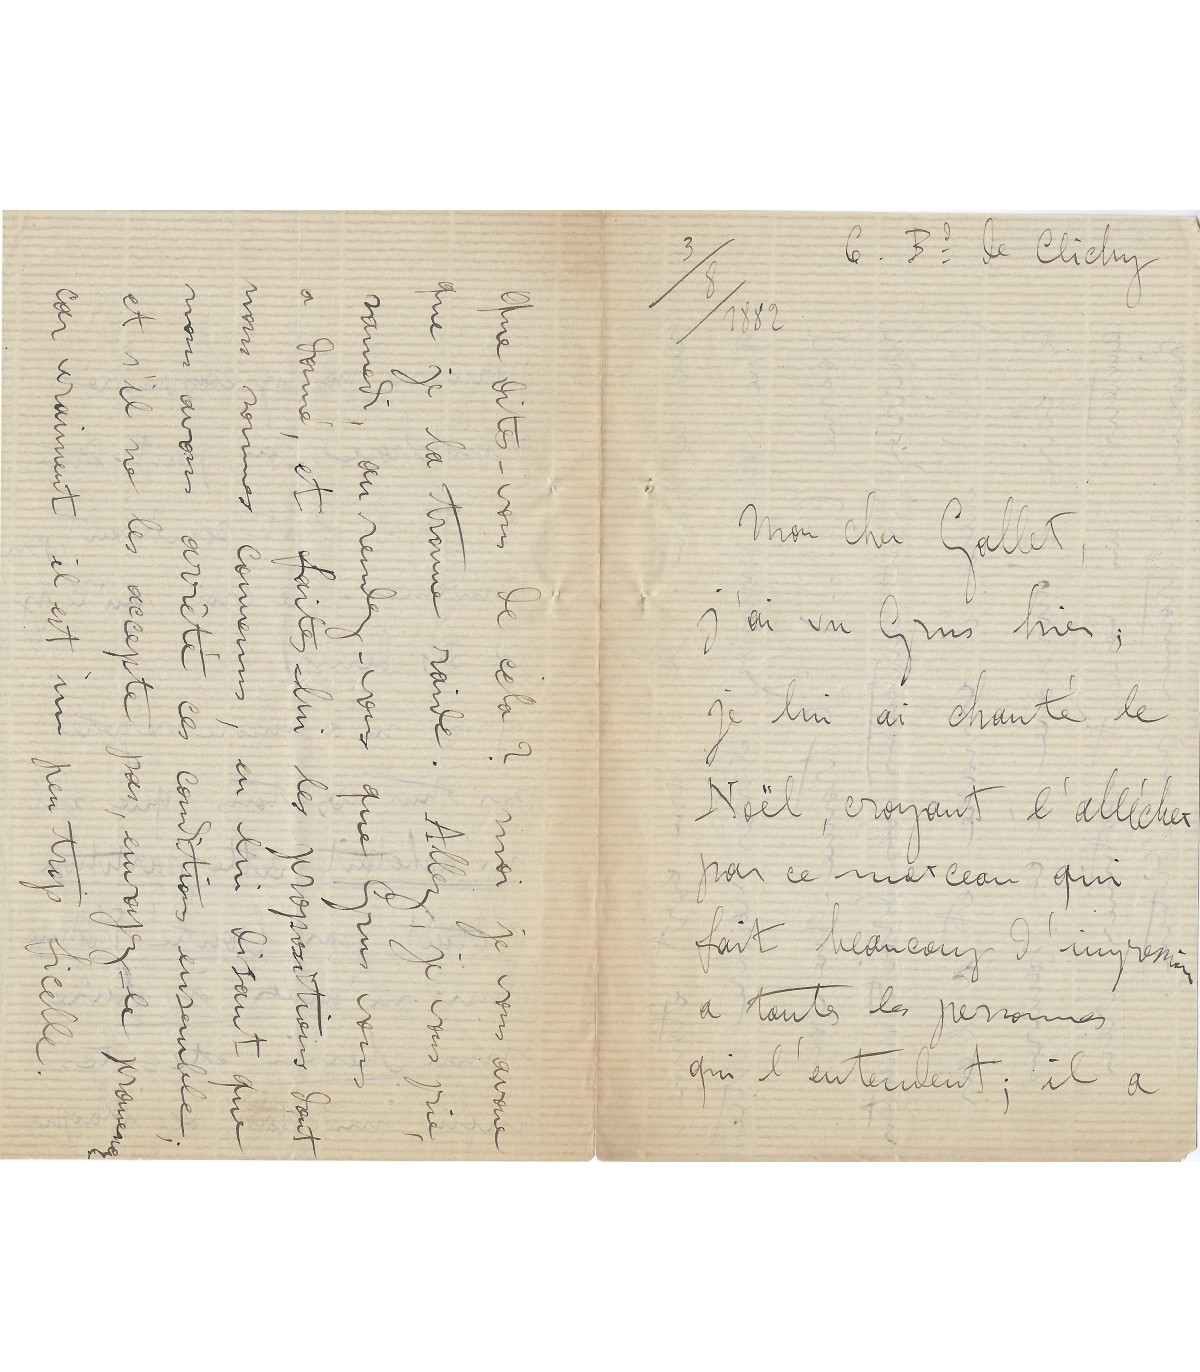 6. Bd de Clichy
3/8/1882
Mon cher Gallet,
j'ai vu Grus hier ;
je lui ai chanté le
Noël, croyant l'allécher
par ce morceau qui
fait beaucoup d'impression
a toutes les personnes
qui l'entendent ; il a
que dites-vous de cela ? moi je vous avoue
que je la trouve raide. Allez, je vous prie,
samedi, au rendez-vous que Grus vous
a donné, et faites-lui les propositions dont
nous sommes convenus, en lui disant que
nous avons arrêté ces conditions ensemble ;
et s'il ne les accepte pas, envoyez-le promener
car vraiment il est un peu trop ficelle.